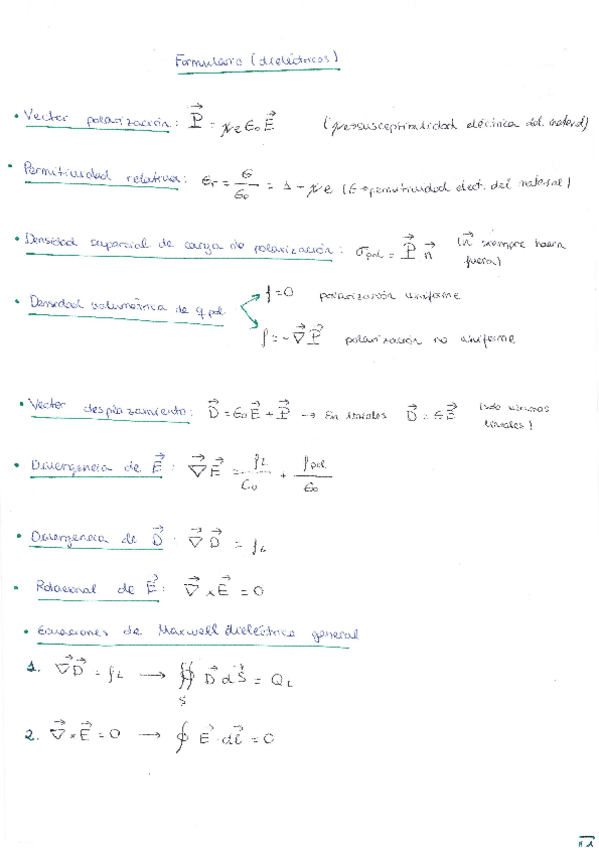 Formulario (dieléctricos)
• Vector polarización: P⃗ = χe ε₀ E⃗ (χe→susceptibilidad eléctrica del material)
• Permitividad relativa: εr = ε/ε₀ = 1 + χe (ε→permitividad eléct. del material)
• Densidad superficial de carga de polarización: σpol = P⃗ n⃗ (n⃗ siempre hacia
fuera)
• Densidad volumétrica de q pol
ρ=0 polarización uniforme
ρ=-∇⃗P⃗ polarización no uniforme
• Vector desplazamiento: D⃗ = ε₀E⃗ + P⃗ → En lineales D⃗ = εE⃗ (sólo
lineales)
• Divergencia de E⃗: ∇⃗E⃗ = ρL/ε₀ + ρpol/ε₀
• Divergencia de D⃗: ∇⃗D⃗ = ρL
• Rotacional de E⃗: ∇⃗×E⃗ = 0
• Ecuaciones de Maxwell dieléctrico general
1. ∇⃗D⃗ = ρL → ∯S D⃗ dS⃗ = QL
2. ∇⃗×E⃗ = 0 → ∮ E⃗·dl⃗ = 0